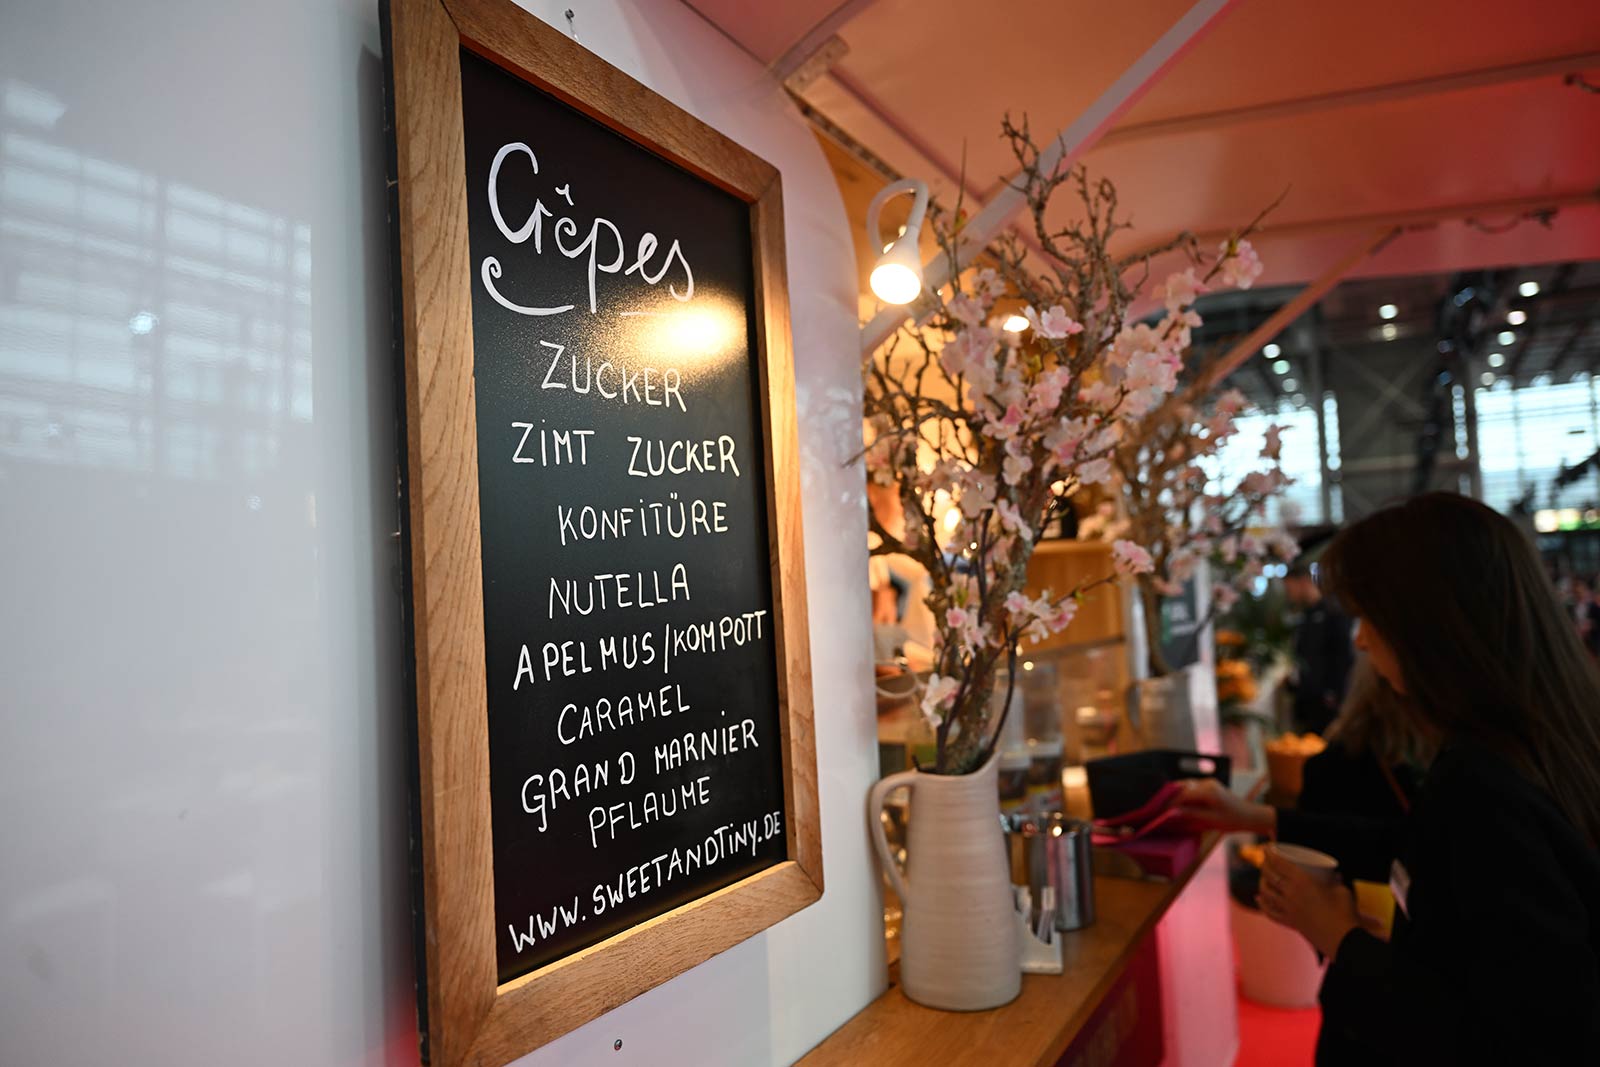 Crêpes
ZUCKER
ZIMT ZUCKER
KONFITÜRE
NUTELLA
APELMUS/KOMPOTT
CARAMEL
GRAND MARNIER
PFLAUME
WWW.SWEETANDTINY.DE